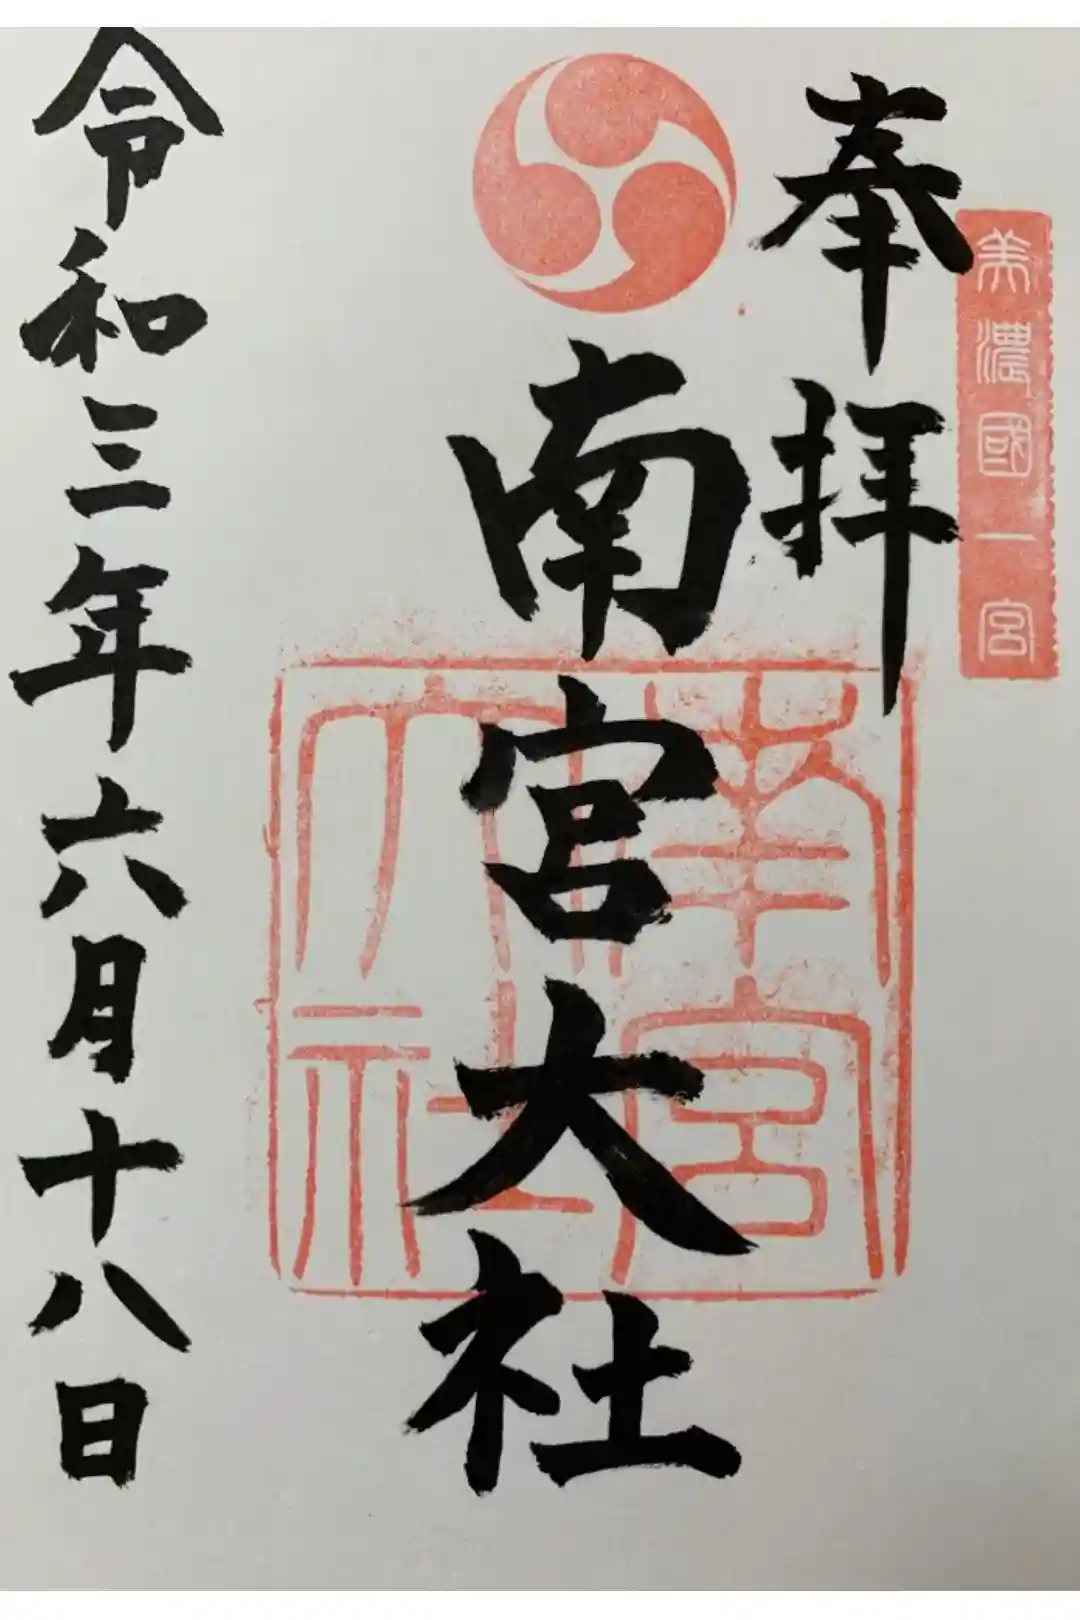 美濃國一宮
奉拝
南宮大社
南宮
大社
令和三年六月十八日